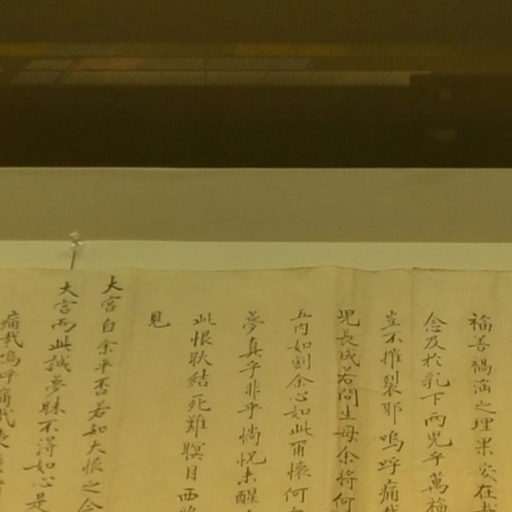 福善禍淫之理果安在哉
念及於乳下兩兒乎萬福
豈不摧裂耶嗚呼痛哉
兒長成若問生母余將何
五內如割余心如此百懷何
夢真乎非乎惝怳未醒
此恨耿結死難瞑目西
見
大宮自余平否若知大恨之合
大宮而此誠夢昧不得如心是
痛哉嗚呼痛哉